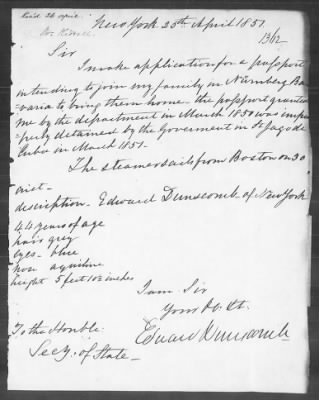 Recd 26 April.
Mr Kissell
New York 25th April 1851
13112
Sir
I make application for a passport
intending to join my family in Nürnberg Ba
=varia to bring them home - the passport granted
me by the department in March 1850 was
detained by the Government on St Jago de
Cuba in March 1851 -
The steamer sails from Boston on 30
inst -
description - Edward Dunscomb of New York
44 years of age
hair grey
eyes - blue
nose aquiline
height 5 feet 10½ inches
I am Sir
Yours Ob. St.
Edward Dunscomb
To the Honble.
Secy. of State -